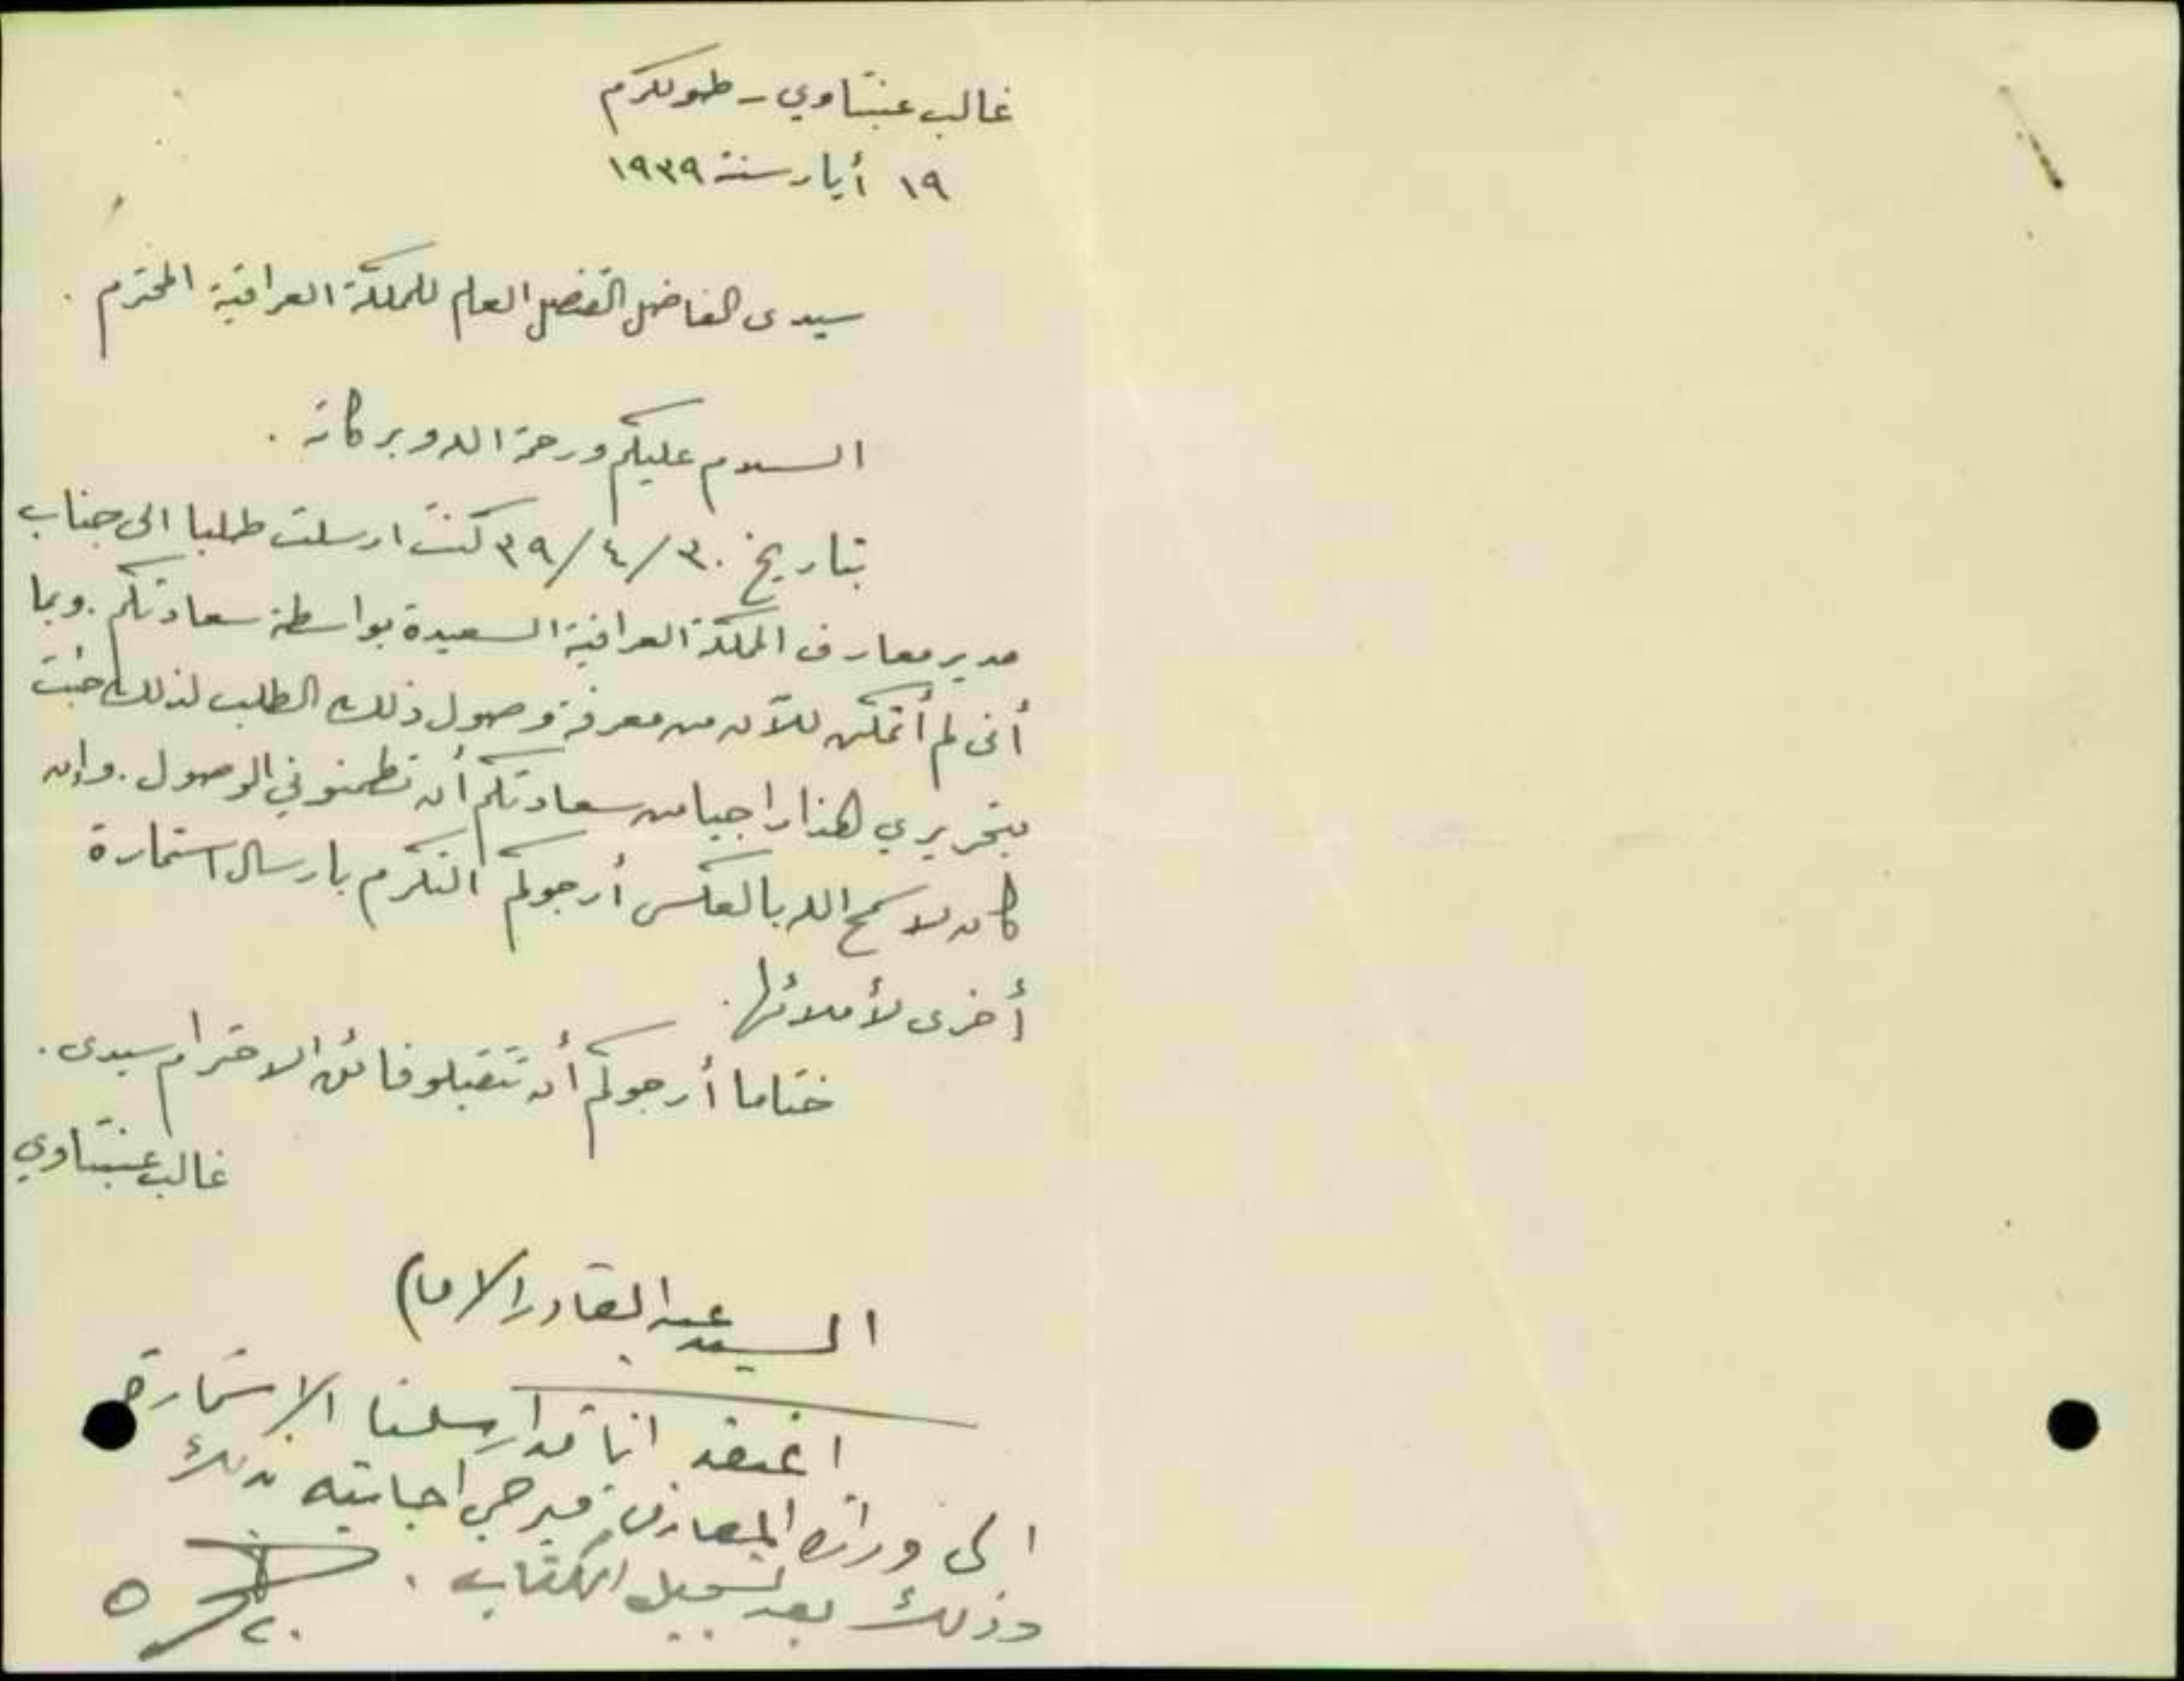 غالب عنبتاوي - طولكرم
١٩ أيار سنة ١٩٣٩
سيدى الفاضل القنصل العام للمملكة العراقية المحترم .
السلام عليكم ورحمة الله وبركاته .
بتاريخ ٣٠/٤/٣٩ كنت ارسلت طلبا الى جناب
مدير معارف المملكة العراقية السعيدة بواسطة سعادتكم . وبما
أنى لم أتمكن للآن من معرفة وصول ذلك الطلب لذلك جئت
بتحريري هذا راجيا من سعادتكم أن تطمنوني الوصول . وإن
كان لا سمح الله بالعكس أرجوكم التكرم بارسال استمارة
أخرى لأملائها .
ختاما أرجوكم أن تتقبلو فائق الاحترام سيدى .
غالب عنبتاوي
السيد عبد القادر الامام
اعتقد اننا قد ارسلنا الاستمارة
الى وزارة المعارف فيرجى اجابته بذلك
وذلك بعد تسجيل الكتاب .
٢٠/٥